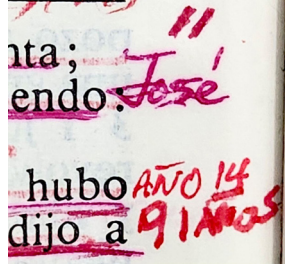 "
nta;
endo: José
hubo AÑO 14
dijo a 91 AÑOS